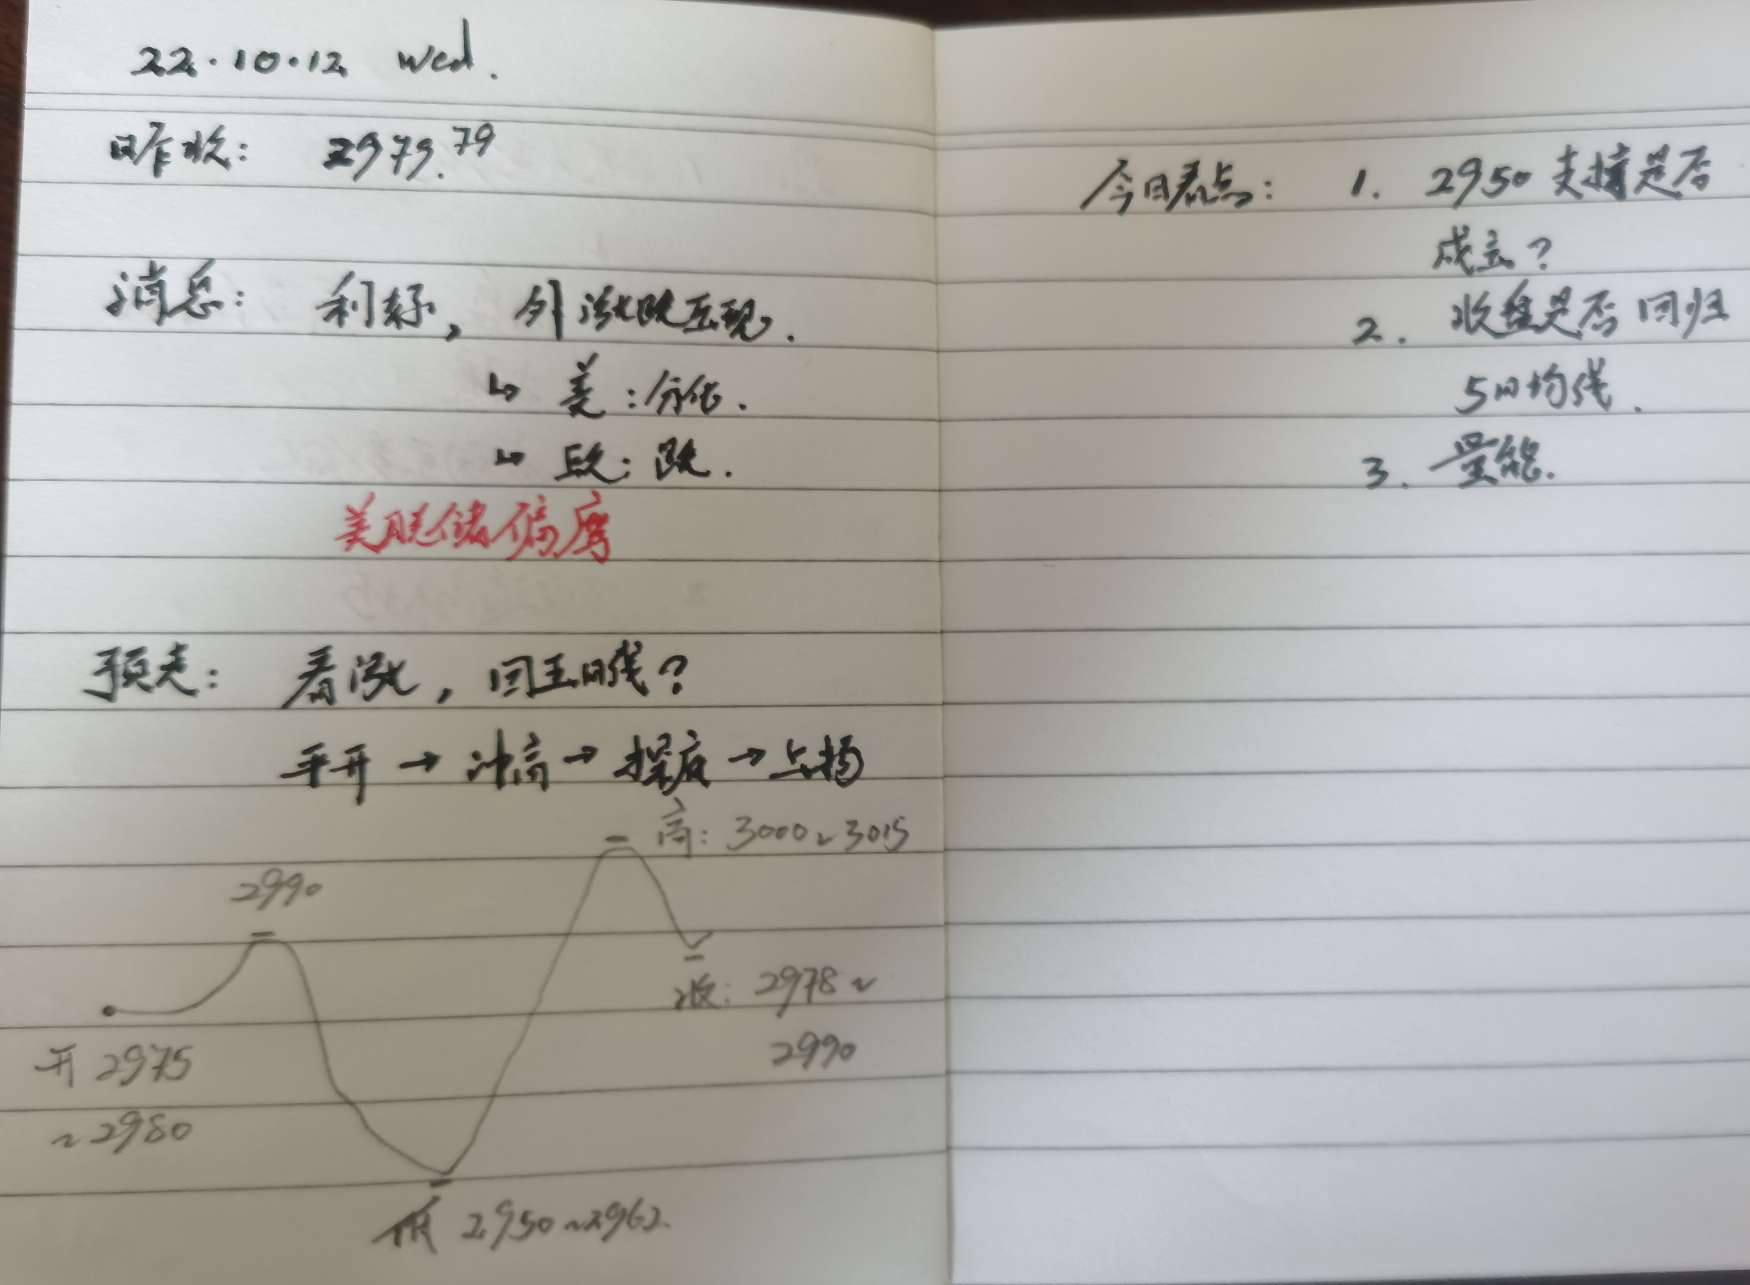 22.10.12 Wed.
昨收: 2979.79
消息: 利好, 外涨跌互现.
↳ 美:分化.
↳ 欧: 跌.
预走: 看涨, 回五日线?
平开→冲高→探底→上扬
高: 3000~3015
2990
收: 2978~
2990
开 2975
~2980
低 2950~2962
今日看点: 1. 2950支撑是否
成立?
2. 收盘是否回归
5日均线.
3. 量能.